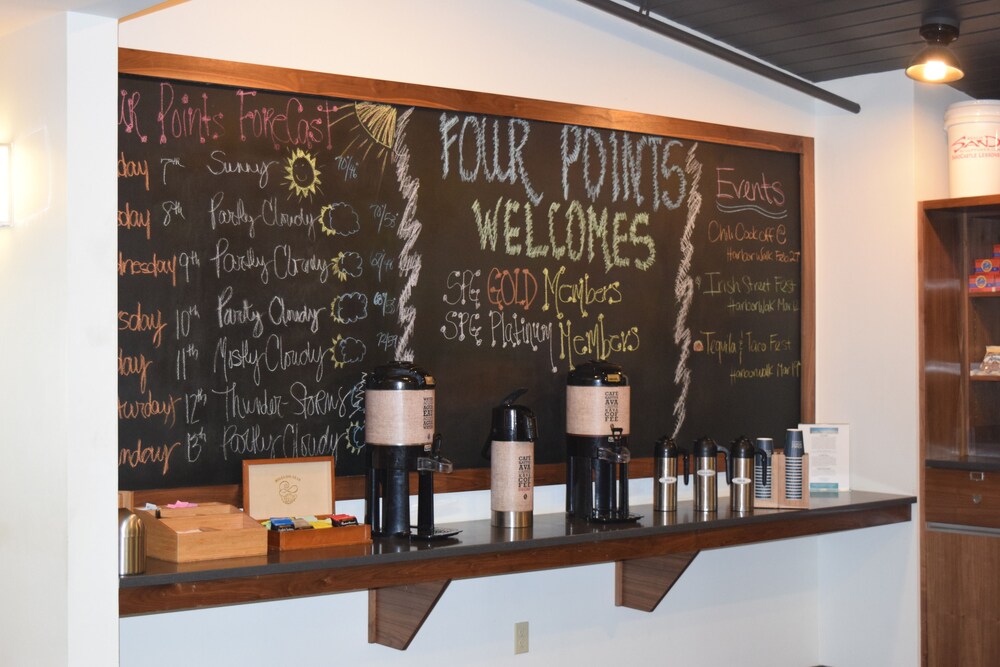 UR Points Forecast
day 7th Sunny 70/46
day 8th Partly Cloudy 70/53
dnesday 9th Partly Cloudy
sday 10th Partly Cloudy
day 11th Mostly Cloudy
turday 12th Thunder-Storms
nday 13th Partly Cloudy
FOUR POINTS
WELCOMES
SPG GOLD Members
SPG Platinum Members
Events
Chili Cook off @
HarborWalk Feb 27
Irish Street Fest
Harborwalk Mar
Tequila & Taco Fest
Harborwalk Mar 19
CAFE
AVA
COFFEE
CAFE
AVA
COFFEE
SAND